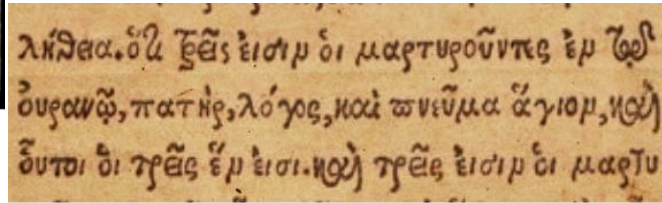 λήθεια. ὅτι τρεῖς εἰσιν οἱ μαρτυροῦντες ἐν τῷ
οὐρανῷ, πατὴρ, λόγος, καὶ πνεῦμα ἅγιον, καὶ
οὗτοι οἱ τρεῖς ἕν εἰσι. καὶ τρεῖς εἰσιν οἱ μαρτυ